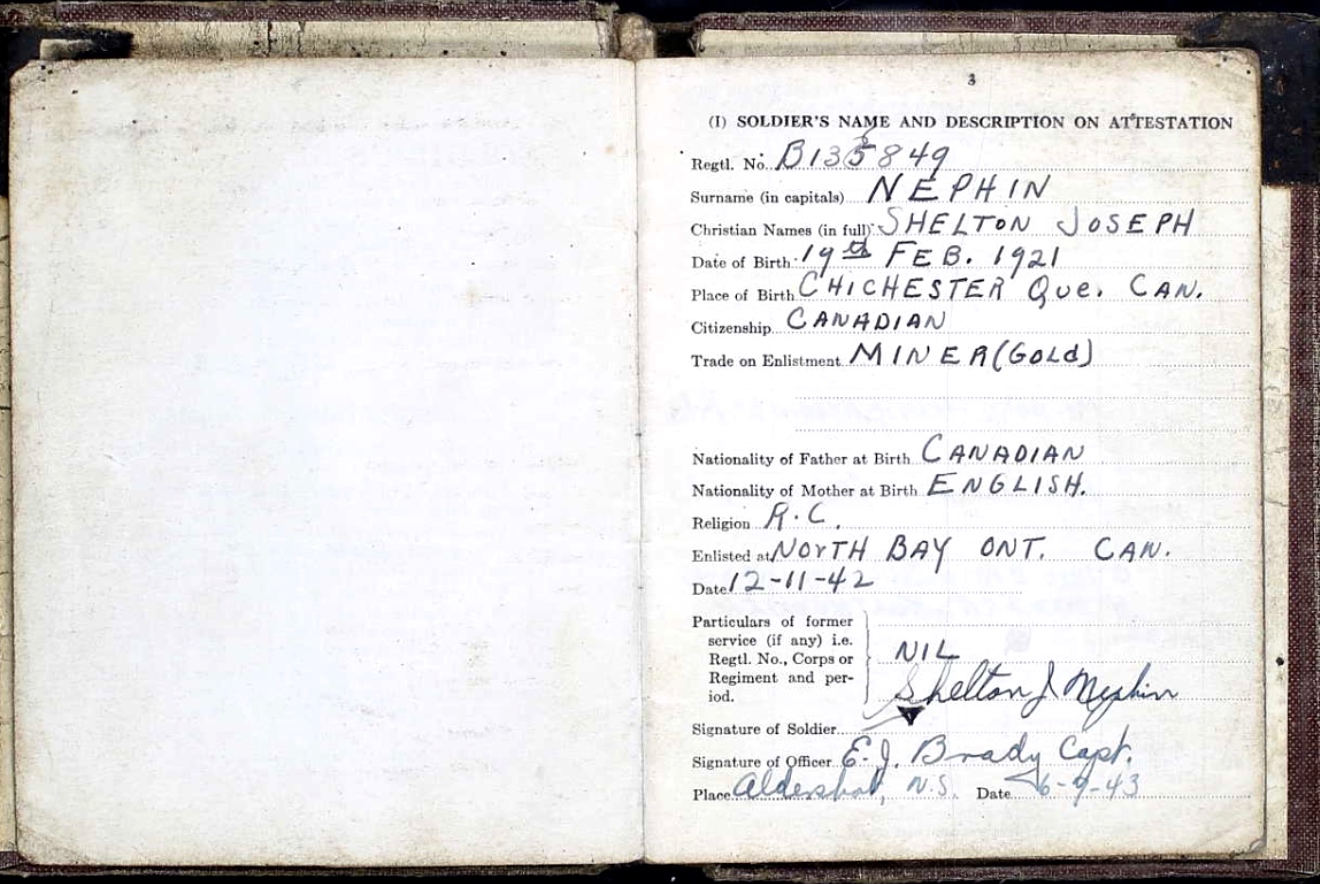 3
(I) SOLDIER'S NAME AND DESCRIPTION ON ATTESTATION
Regtl. No. B135849
Surname (in capitals) NEPHIN
Christian Names (in full) SHELTON JOSEPH
Date of Birth 19th FEB. 1921
Place of Birth CHICHESTER Que. CAN.
Citizenship CANADIAN
Trade on Enlistment MINER (GOLd)
Nationality of Father at Birth CANADIAN
Nationality of Mother at Birth ENGLISH.
Religion R.C.
Enlisted at NOrTH BAY ONT. CAN.
Date 12-11-42
Particulars of former
service (if any) i.e.
Regtl. No., Corps or
Regiment and per-
iod.
NIL
Shelton J Nephin
Signature of Soldier
Signature of Officer E. J. Brady Capt.
Place Aldershot, N.S. Date 6-9-43